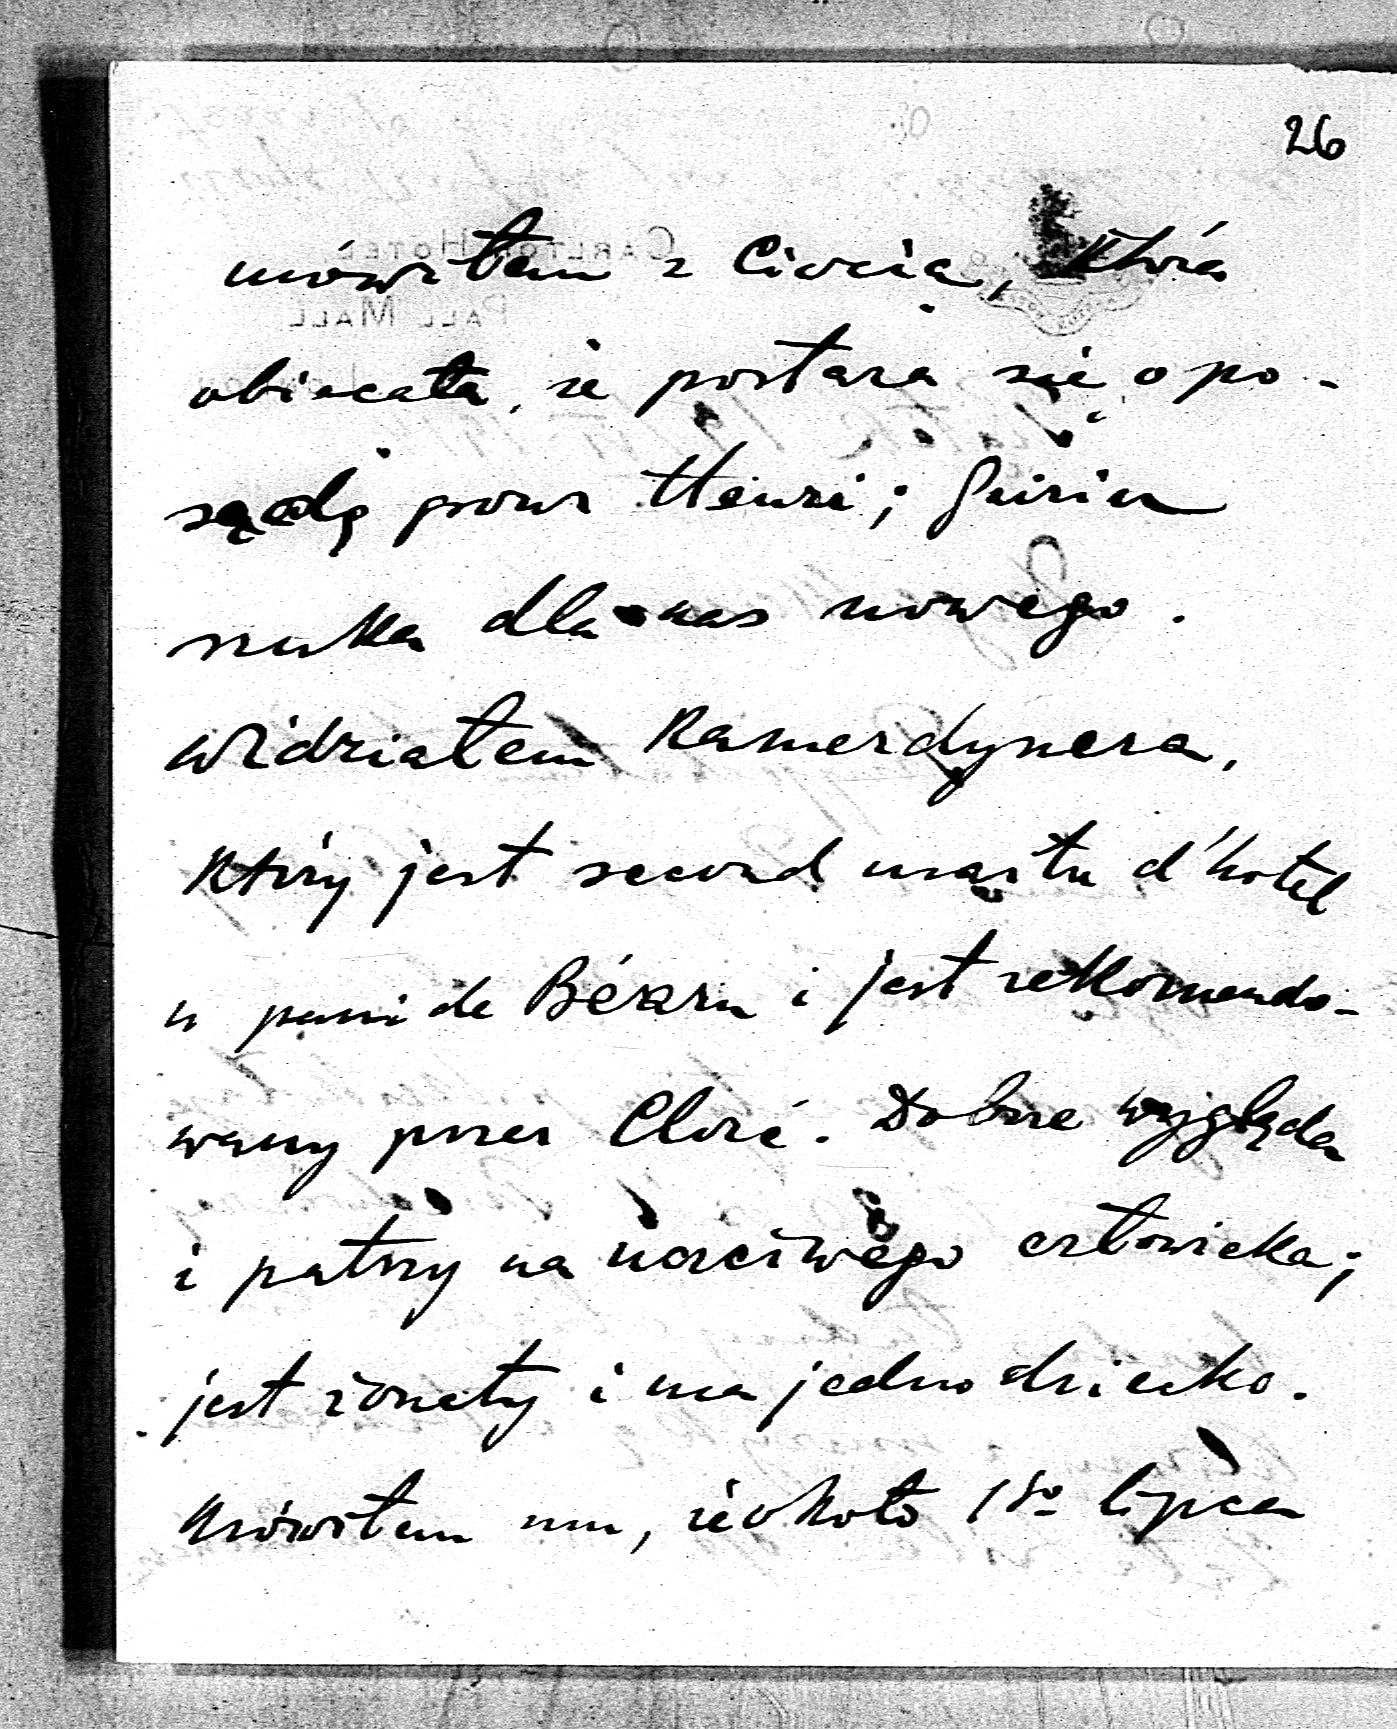 26
mówiłem z Ciocią, która
obiecała, że postara się o po-
sadę pour Henri; Guérin
szuka dla nas nowego.
Widziałem Kamerdynera,
który jest second maître d'hotel
u pani de Béarn i jest rekomendo-
wany przez Cloré. Dobrze wygląda
i patrzy na uczciwego człowieka;
jest żonaty i ma jedno dziecko.
Mówiłem mu, że około 15º lipca
CARLTON HOTEL,
PALL MALL